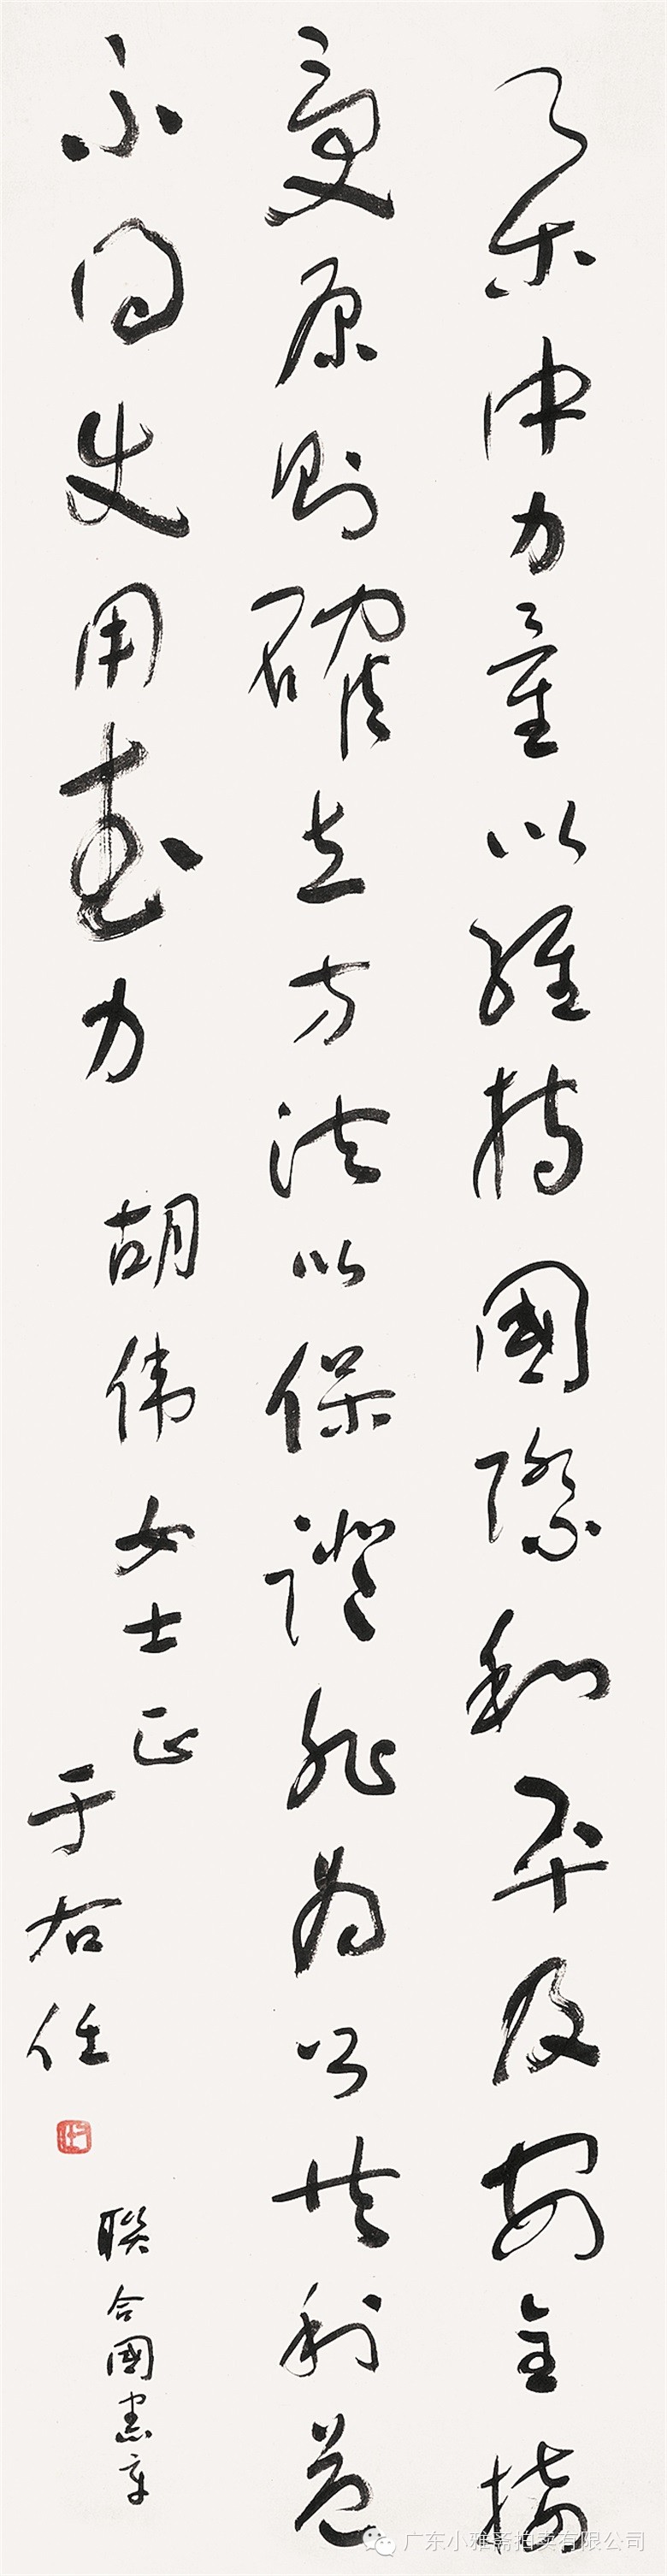 集中力量以維持國際和平及安全接
受原則確立方法以保證非為公共利益
不得使用武力
胡偉女士正
于右任
聯合國憲章
广东小雅斋拍卖有限公司